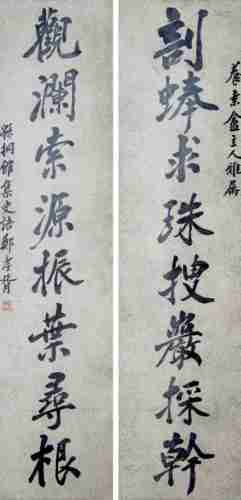 養素盦主人雅屬
剖蜯求珠搜巖採幹
觀瀾索源振葉尋根
集史語鄭孝胥